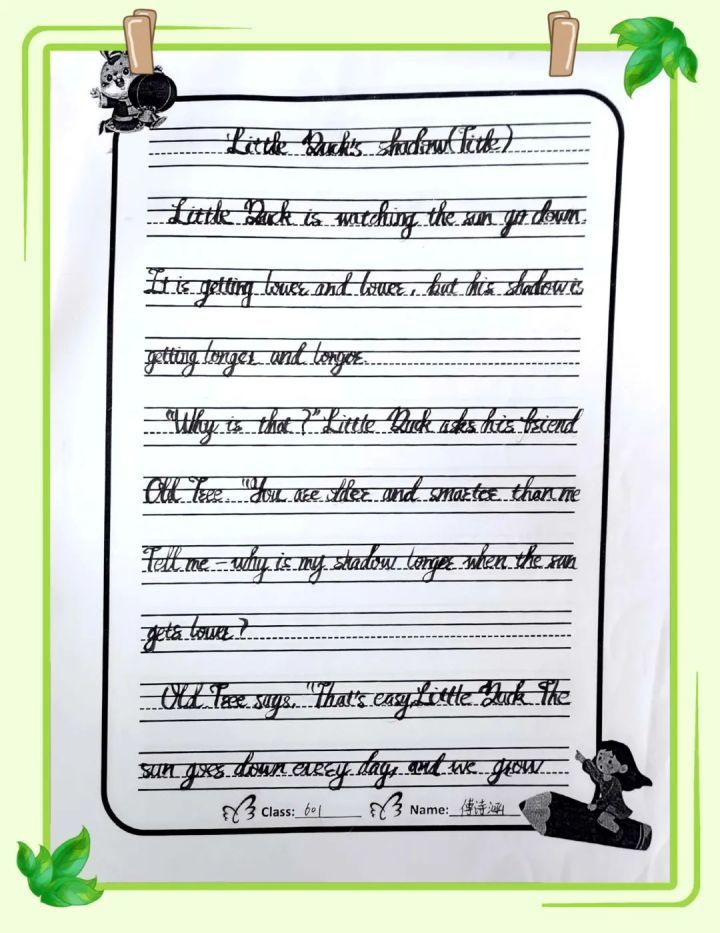 Little Duck's shadow(Title)
Little Duck is watching the sun go down.
It is getting lower and lower, but his shadow is
getting longer and longer.
"Why is that?" Little Duck asks his friend
Old Tree. "You are older and smarter than me
Tell me – why is my shadow longer when the sun
gets lower?
Old Tree says. "That's easy,Little Duck The
sun goes down every day, and we grow
Class: 601 Name: 傅诗涵